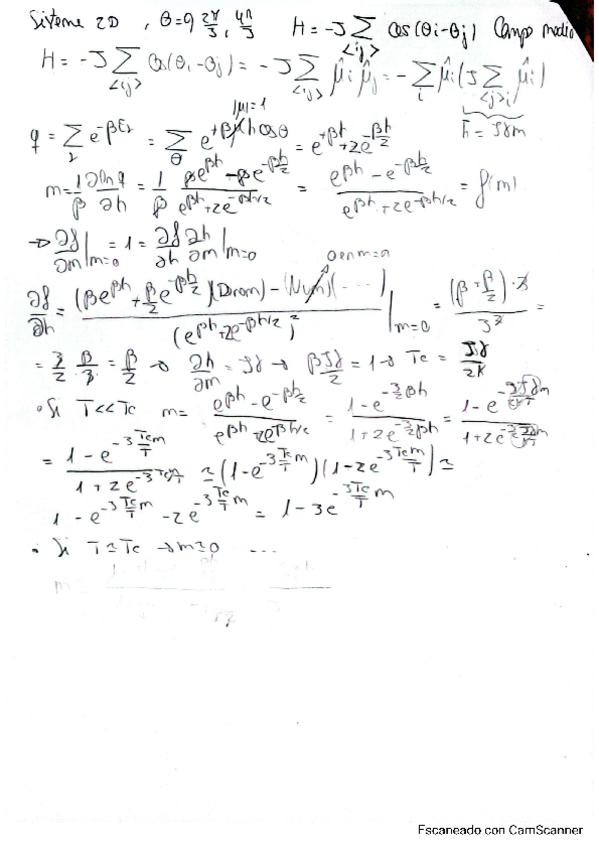 Sistema 2D, θ=0, 2π/3, 4π/3 H = -J Σ_<ij> cos(θi-θj) Campo medio
H = -J Σ_<ij> cos(θi-θj) = -J Σ_<ij> μ̂i μ̂j = - Σ_i μ̂i (J Σ_<j>i μ̂j)
|μ|=1
h̄ = Jγm
q = Σ_r e^{-βEr} = Σ_θ e^{+βμh cosθ} = e^{+βh} + 2e^{-βh/2}
m = 1/β ∂ln q/∂h = 1/β (βe^{βh} - βe^{-βh/2})/(e^{βh} + 2e^{-βh/2}) = (e^{βh} - e^{-βh/2})/(e^{βh} + 2e^{-βh/2}) = f(m)
→ ∂f/∂m|_{m=0} = 1 = ∂f/∂h ∂h/∂m|_{m=0}
0 en m=0
∂f/∂h = ((βe^{βh} + β/2 e^{-βh/2})(Denom) - (Num)(···))/(e^{βh} + 2e^{-βh/2})² |_{m=0} = ((β + β/2)·3)/3² =
= 3/2 β/3 = β/2 → ∂h/∂m = Jγ → βJγ/2 = 1 → Tc = Jγ/2k
· Si T<<Tc m = (e^{βh} - e^{-βh/2})/(e^{βh} + 2e^{-βh/2}) = (1 - e^{-3/2 βh})/(1 + 2e^{-3/2 βh}) =
= (1 - e^{-3 Tc/T m})/(1 + 2e^{-3 Tc/T m}) ≃ (1 - e^{-3 Tc/T m})(1 - 2e^{-3 Tc/T m}) ≃
1 - e^{-3 Tc/T m} - 2e^{-3 Tc/T m} = 1 - 3e^{-3 Tc/T m}
· Si T≃Tc → m≃0 ...
Escaneado con CamScanner